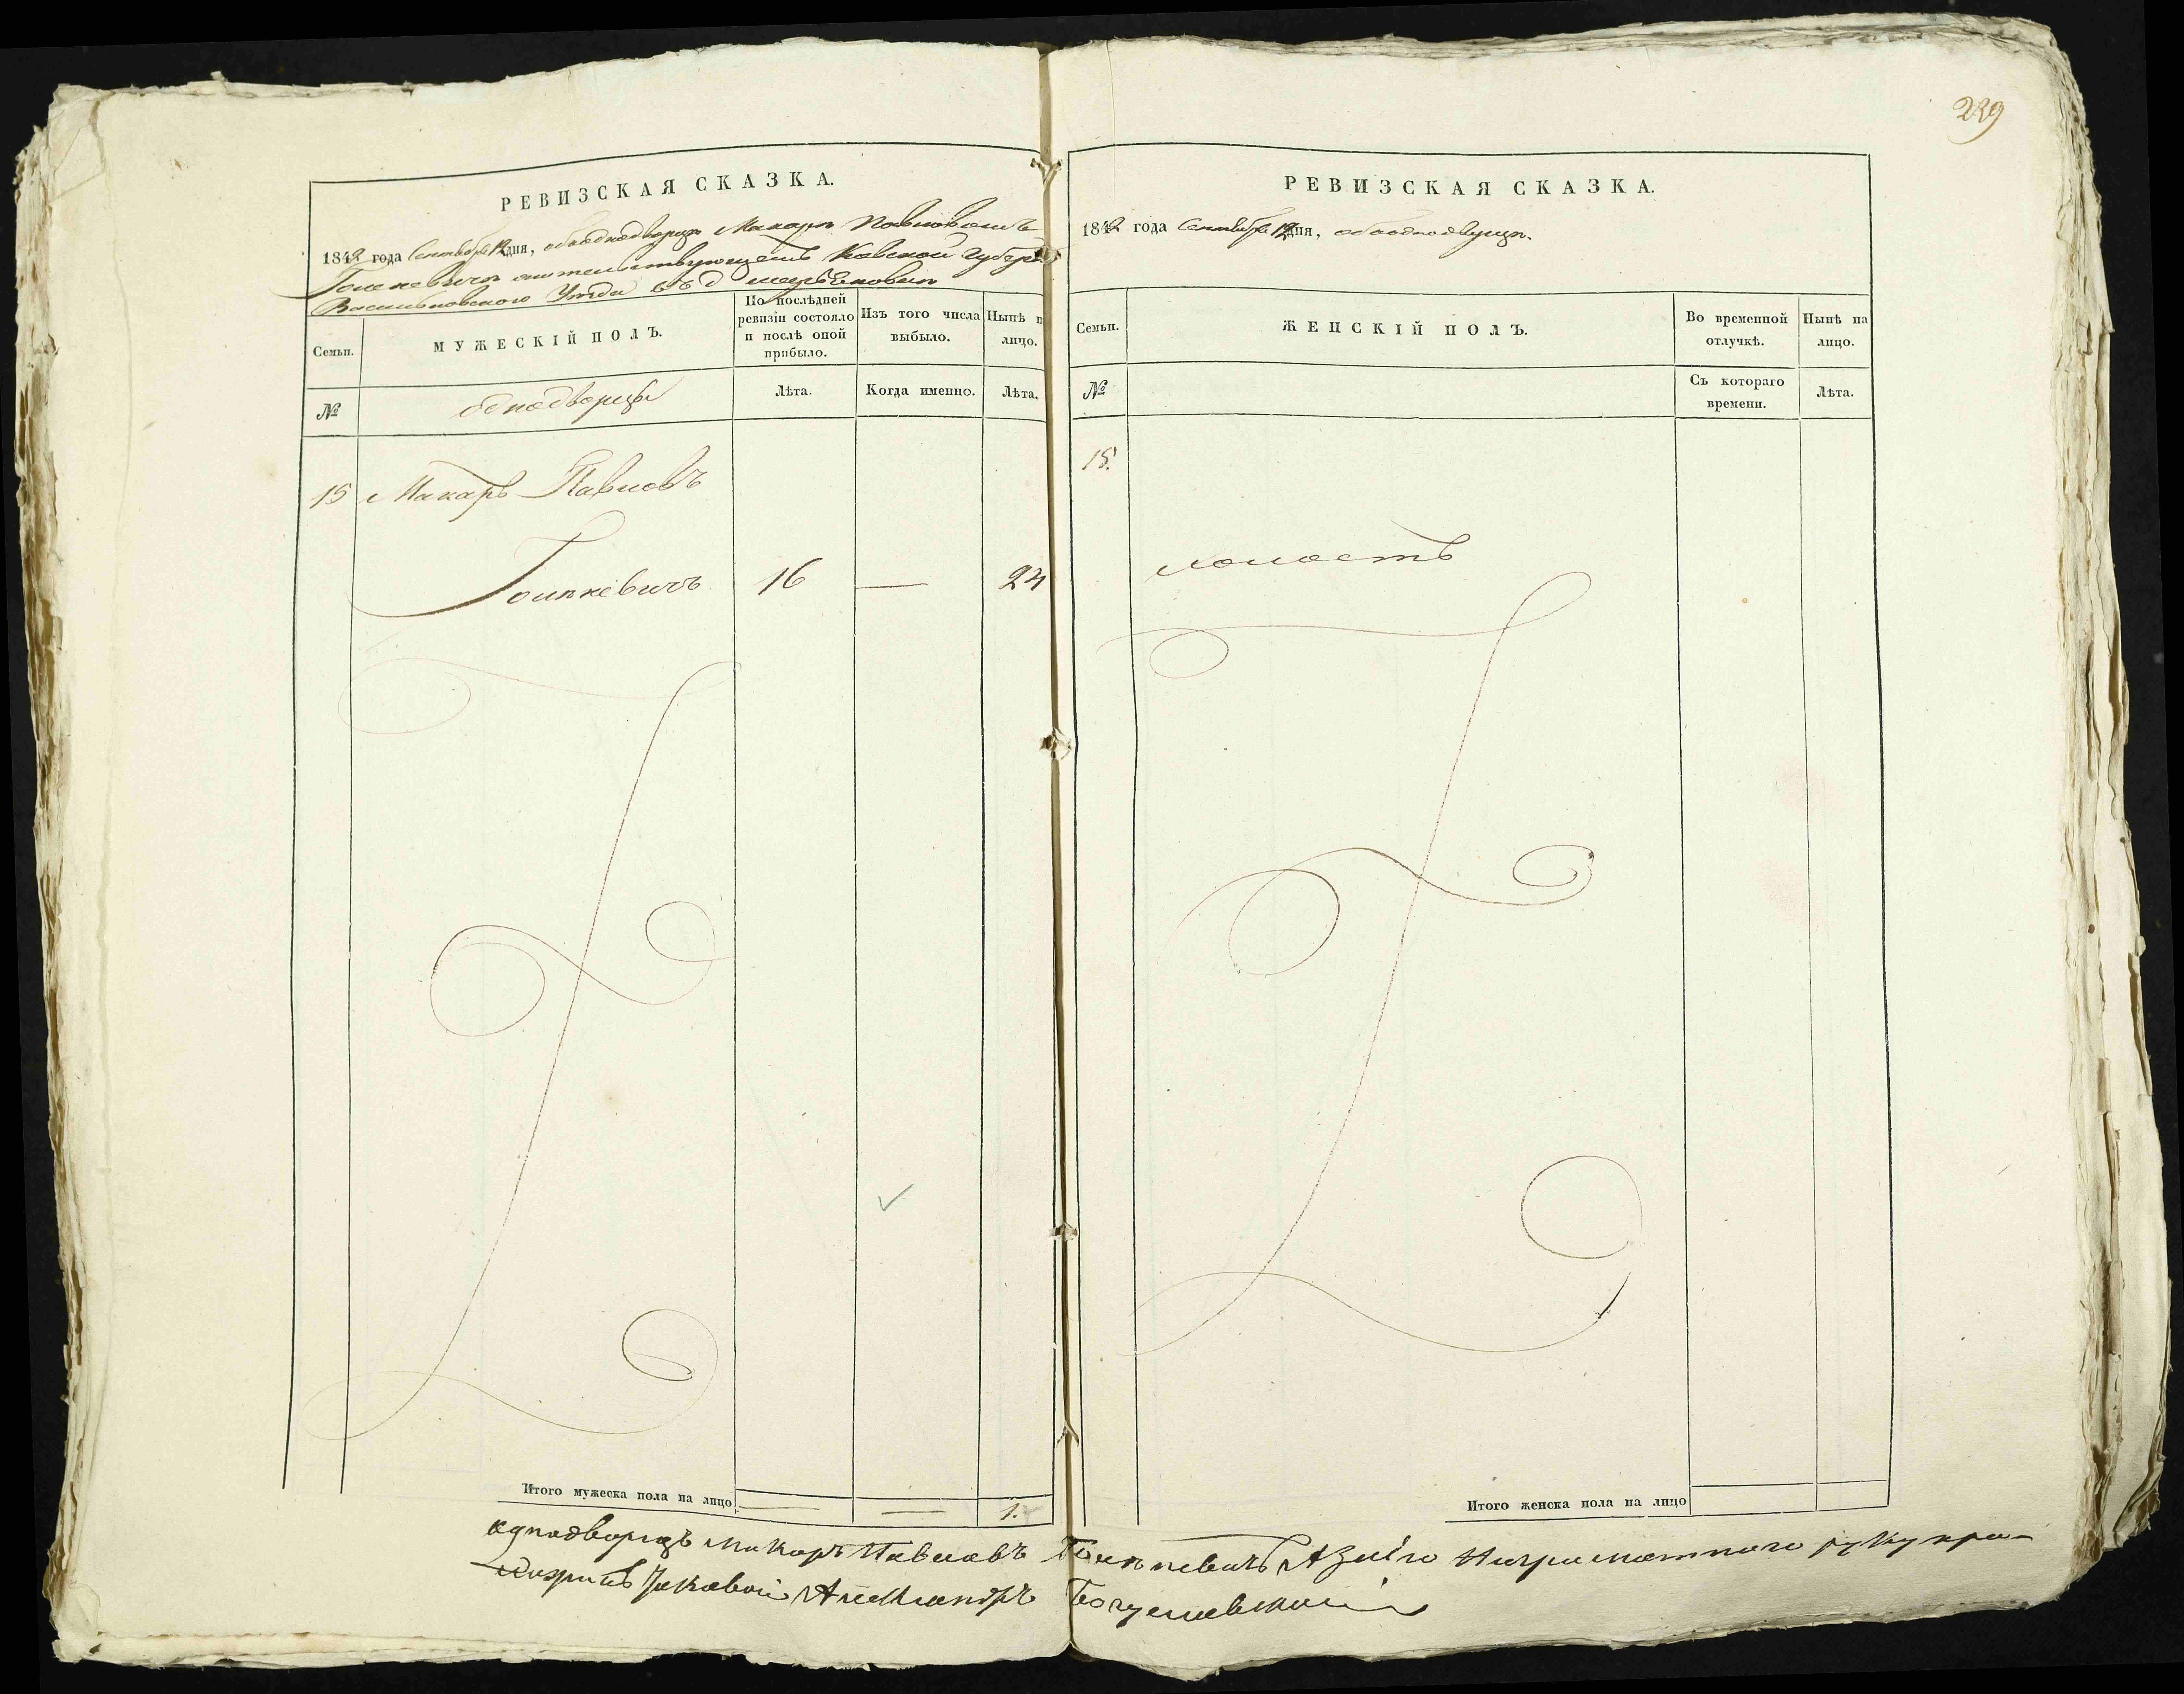 239
РЕВИЗСКАЯ СКАЗКА.
1842 года Сентября 12 дня, объ однодворцѣ Макарѣ Павловомъ
жительствующемъ Кіевской Губер.
Васильковскаго Уѣзда въ
Семьи.
МУЖЕСКІЙ ПОЛЪ.
По послѣдней ревизіи состояло и послѣ оной прибыло.
Изъ того числа выбыло.
Нынѣ н лицо.
№
однодворцы
Лѣта.
Когда именно.
Лѣта.
15 Макаръ Павловъ
Голпкевичъ 16 — 24
Итого мужеска пола на лицо — — 1.
РЕВИЗСКАЯ СКАЗКА.
1842 года Сентября 12 дня, объ однодворцѣ.
Семьи.
ЖЕНСКІЙ ПОЛЪ.
Во временной отлучкѣ.
Нынѣ на лицо.
№
Съ котораго времени.
Лѣта.
15.
холостъ
Итого женска пола на лицо
однодворецъ Макаръ Павловъ неграмотнаго руку при-
Александръ